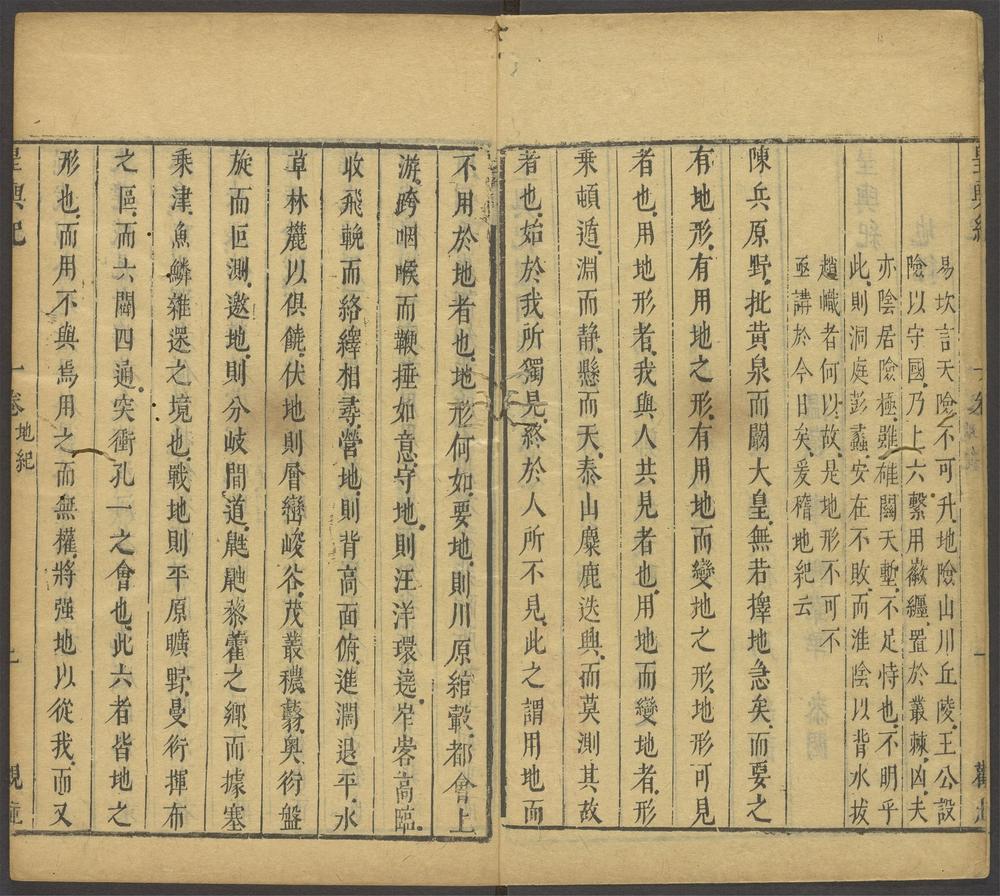 易坎言天險不可升地險山川丘陵王公設
險以守國乃上六繫用徽纆置於叢棘凶夫
亦陰居險極雖碓關天塹不足恃也不明乎
此則洞庭彭蠡安在不敗而淮陰以背水拔
趙幟者何以故是地形不可不
亟講於今日矣爰稽地紀云
陳兵原野批黃泉而闞大皇無若擇地急矣而要之
有地形有用地之形有用地而變地之形地形可見
者也用地形者我與人共見者也用地而變地者形
乘頓遁淵而静懸而天泰山麋鹿迭興而莫測其故
者也始於我所獨見終於人所不見此之謂用地而
不用於地者也地形何如要地則川原綰轂都會上
游跨咽喉而鞭捶如意守地則汪洋環遶岝峉高臨
收飛輓而絡繹相尋營地則背高面俯進濶退平水
草林麓以俱饒伏地則層巒峻谷茂叢穠蘙奧衍盤
旋而叵測邀地則分岐間道鼪鼬藜藿之鄉而據塞
乘津魚鱗雜遝之境也戰地則平原曠野曼衍揮布
之區而六闢四通突衝孔一之會也此六者皆地之
形也而用不與焉用之而無權將强地以從我而又
皇輿紀
一卷
地紀